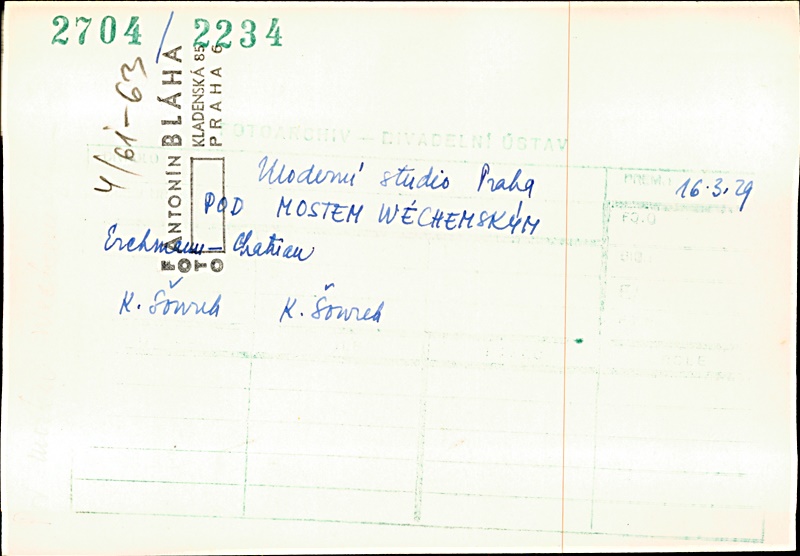 2704 / 2234
4/61-63
FOTO ANTONÍN BLÁHA
KLADENSKÁ 85
PRAHA 6
FOTOARCHIV – DIVADELNÍ ÚSTAV
Moderní studio Praha
PREM.
16.3.29
POD MOSTEM WÉCHEMSKÝM
FOTO
Erchmann – Chatrian
K. Šourek K. Šourek